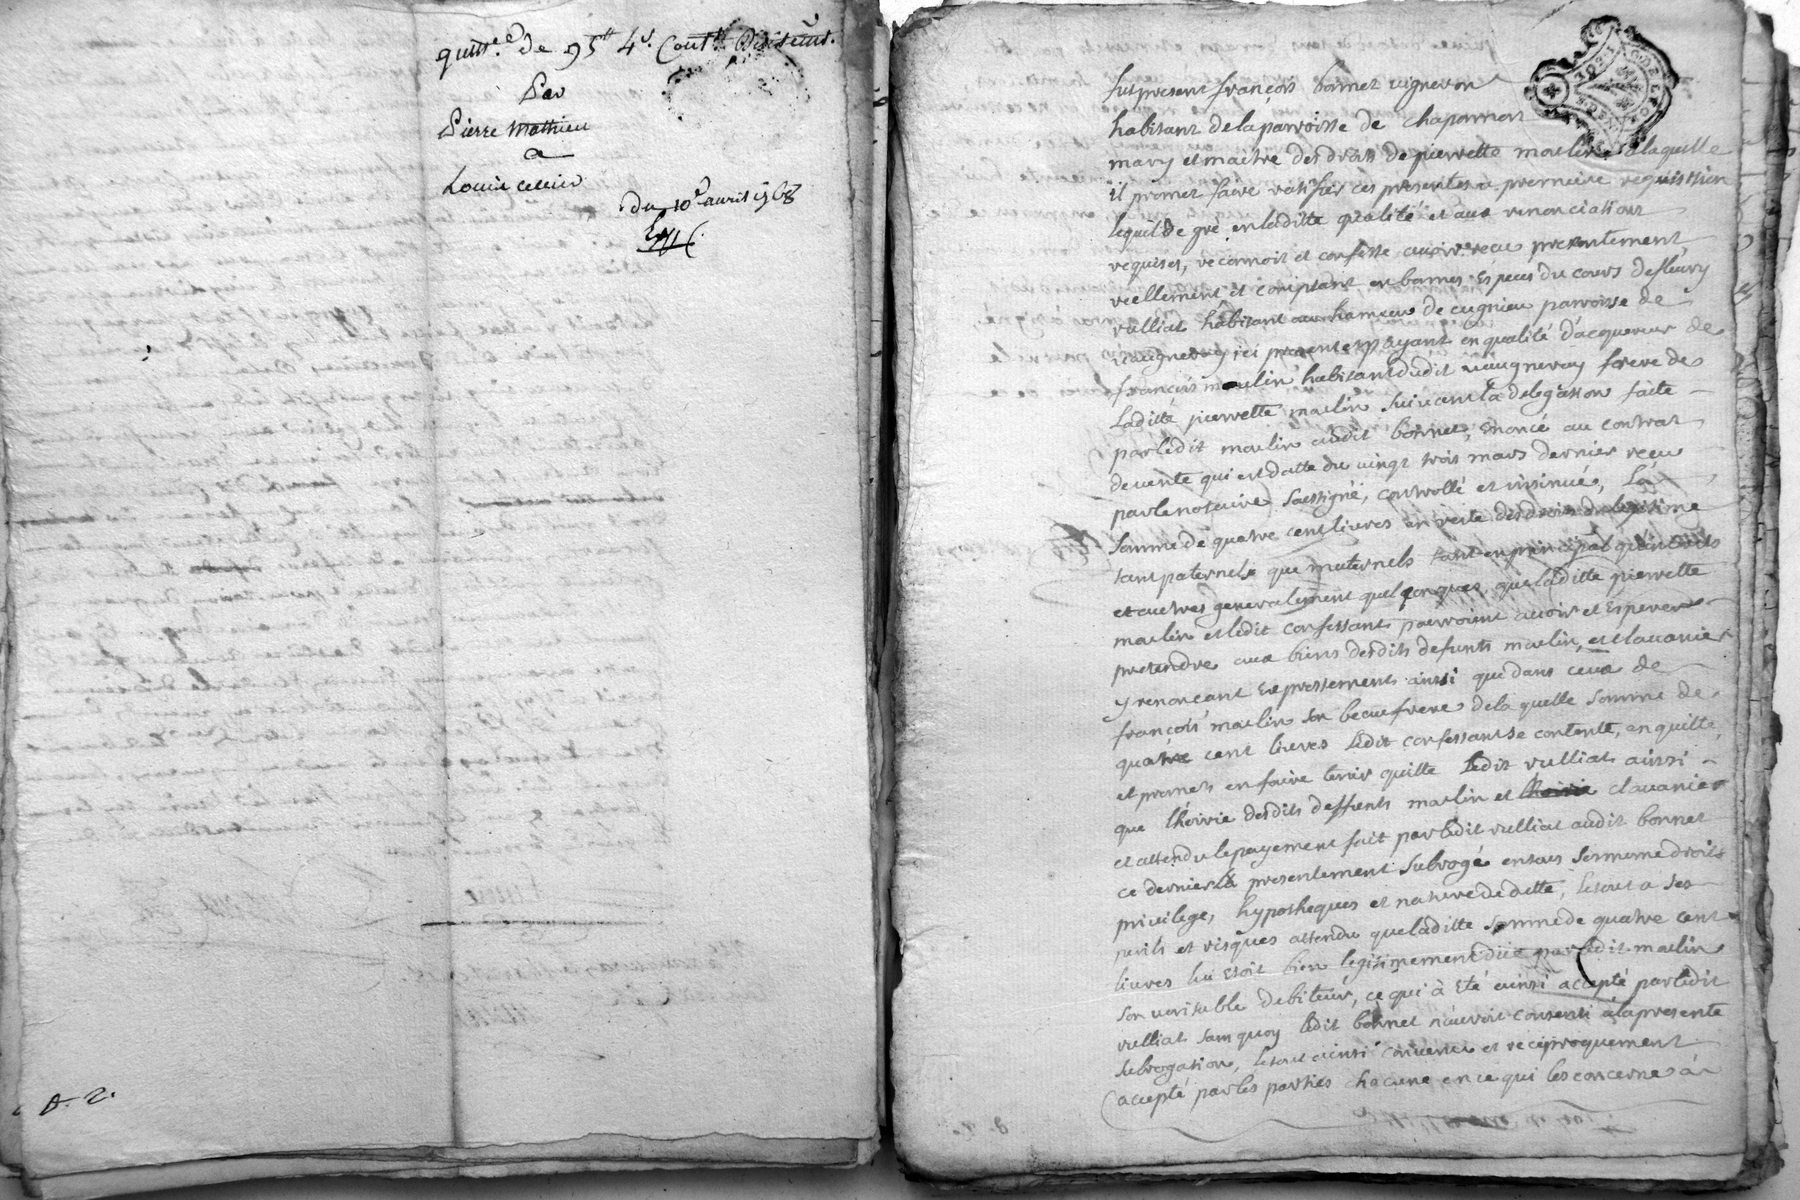 quitt.ce de 95# 4s. Contt.
Par
Pierre Mathieu
a
Louis cellier
du 10e avril 1768
A. 2.
fut present françois bonnet vigneron
habitant de la parroisse de chaponnost
mary et maitre des droits de pierrette moulin, a laquelle
il promet faire ratifier ces presentes a premiere requisition
lequel de gré en laditte qualité et aux renonciations
requises, reconnoit et confesse avoir receu presentement
reellement et comptant en bonnes Especes du cours de fleury
vulliat habitant au hameau de cugnieu parroisse de
vaugneray ici present et payant en qualité d'acquereur de
françois moulin habitant dudit vaugneray frere de
Laditte pierrette moulin suivant la delegation faite
par ledit moulin audit bonnet, Enoncé au contrat
de vente qui est datté du vingt trois mars dernier receu
par le notaire soussigné, controllé et insinué, La
somme de quatre cent livres en reste des droits de legitime
tant paternels que maternels tant en principal qu'interets
et autres generalement quelconques que laditte pierrette
moulin et ledit confessant pourroient avoir et Esperer
pretendre aux biens desdits defunts moulin, et clavanier
y renoncant Expressement ainsi que dans ceux de
françois moulin son beaufrere de la quelle somme de
quatre cent livres ledit confessant se contente, en quitte,
et promet en faire tenir quitte Ledit vulliat ainsi
que l'hoirie desdits deffunts moulin et clavanier
et attendu le payement fait par ledit vulliat audit bonnet
ce dernier l'a presentement subrogé en tous ses meme droits
privilege, hypotheques et nature de dette, le tout a ses
perils et risques attendu que laditte somme de quatre cent
livres lui Etoit bien legitimement düe par ledit moulin
son veritable debiteur, ce qui à Eté ainsi accepté par ledit
vulliat sans quoy ledit bonnet n'auroit consenti a la presente
subrogation, le tout ainsi convenu et reciproquement
accepté par les parties chacune en ce qui les concerne à